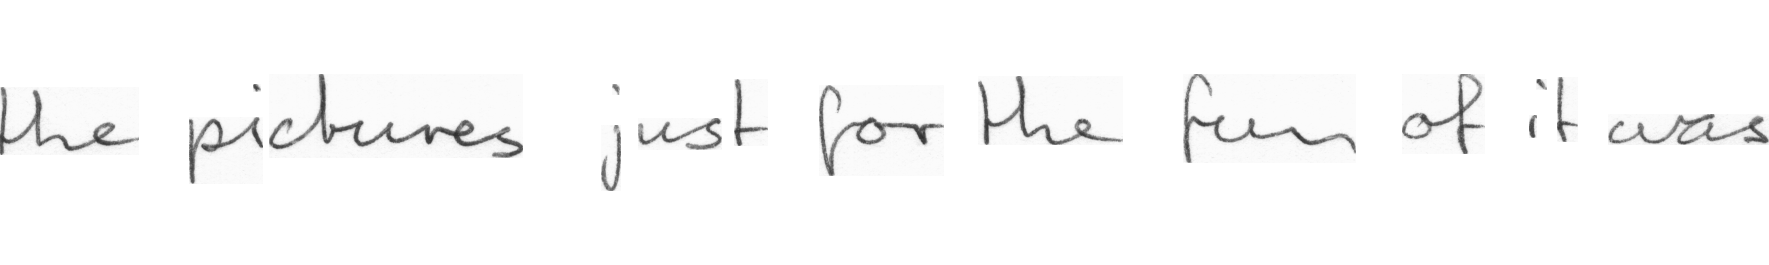 the pictures just for the fun of it was